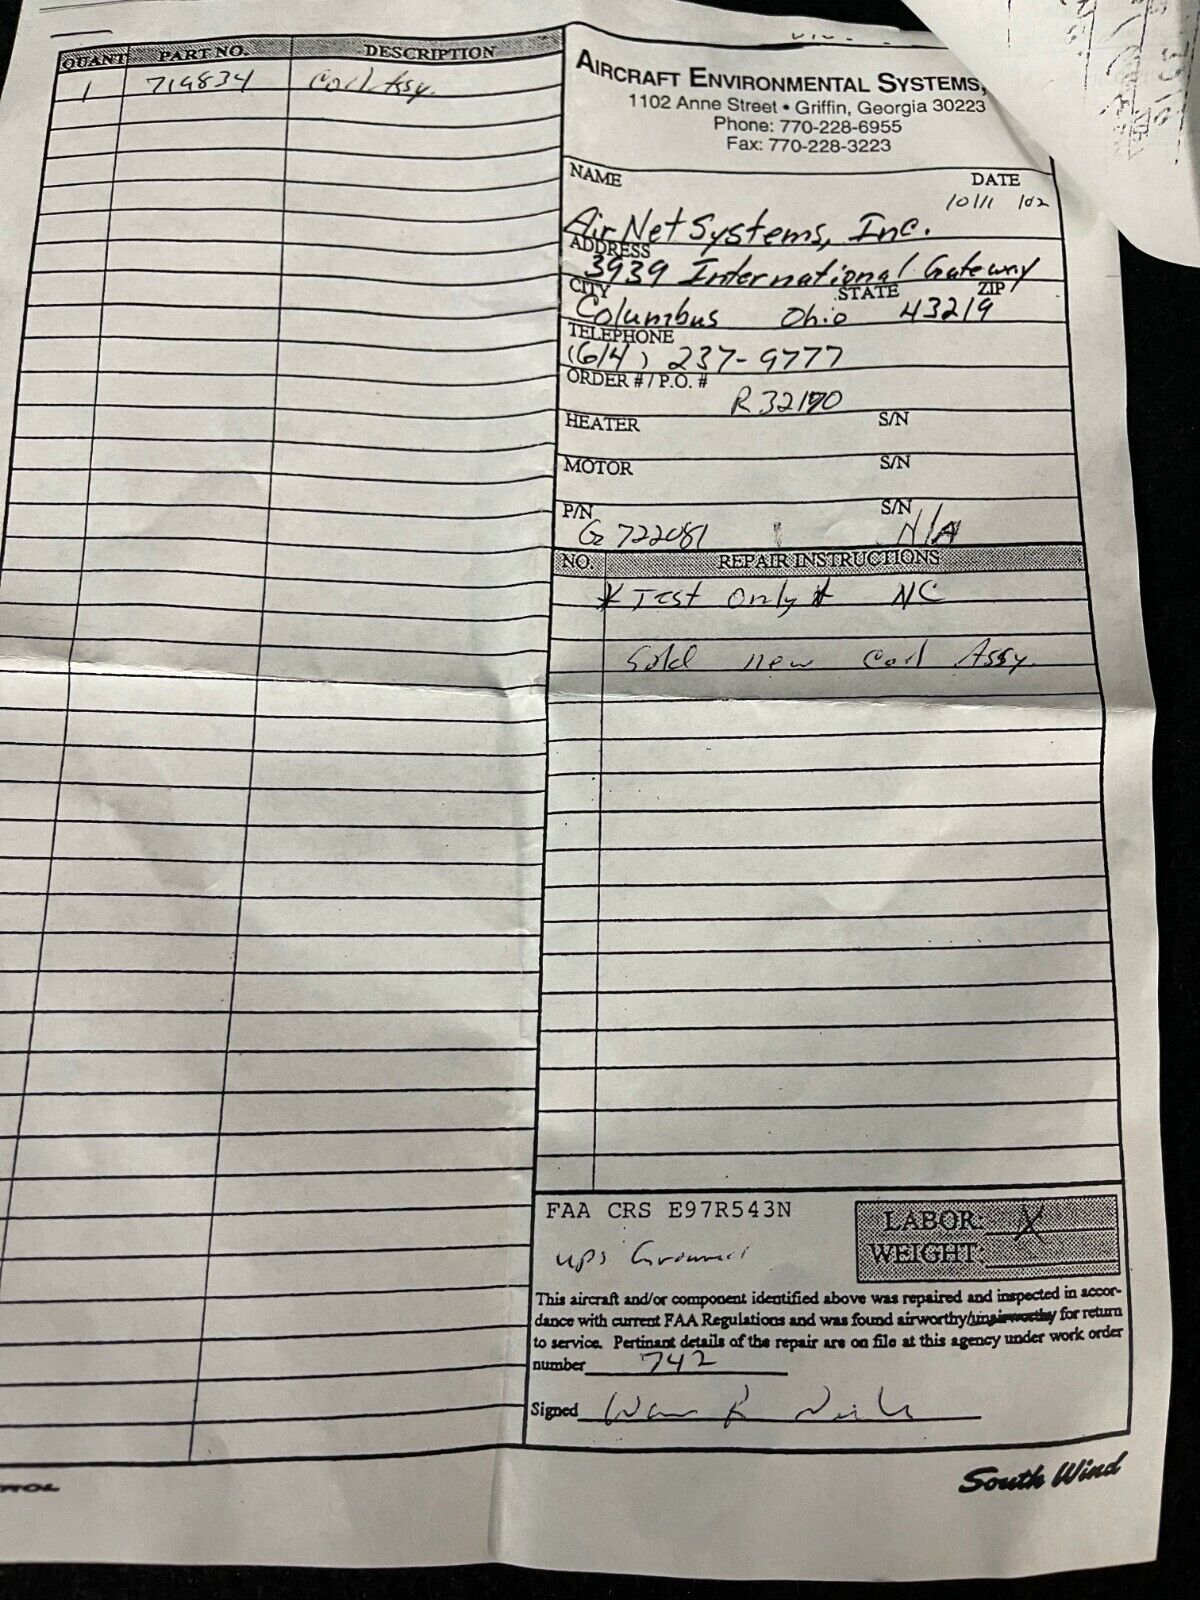 QUANT PART NO. DESCRIPTION
1 719834 Coil Assy.
AIRCRAFT ENVIRONMENTAL SYSTEMS,
1102 Anne Street • Griffin, Georgia 30223
Phone: 770-228-6955
Fax: 770-228-3223
NAME DATE
10/11/02
Air Net Systems, Inc.
ADDRESS
3939 International Gateway
CITY STATE ZIP
Columbus Ohio 43219
TELEPHONE
(614) 237-9777
ORDER # / P.O. #
HEATER S/N
MOTOR S/N
P/N S/N
G 722081 N/A
NO. REPAIR INSTRUCTIONS
* Test Only * NC
Sold new Coil Assy.
FAA CRS E97R543N
LABOR: X
ups Ground
WEIGHT:
This aircraft and/or component identified above was repaired and inspected in accor-
dance with current FAA Regulations and was found airworthy/unairworthy for return
to service. Pertinant details of the repair are on file at this agency under work order
number 742
Signed
South Wind